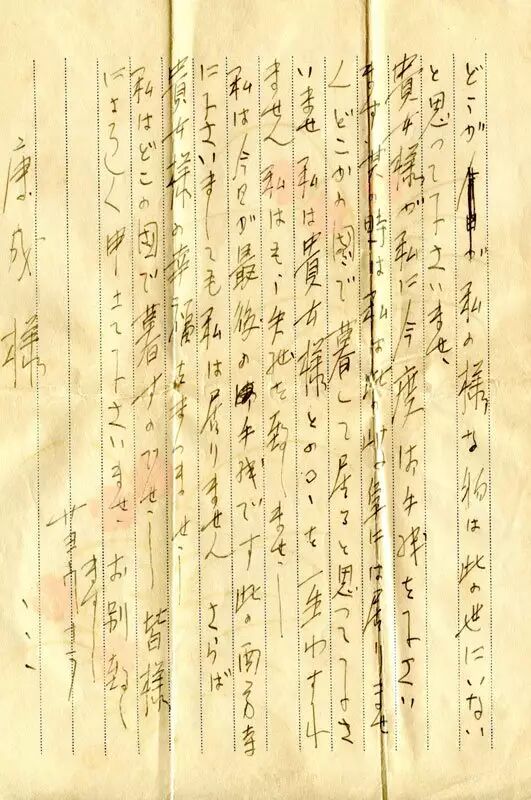 どこか〻が私の様な物は此の世にいない
と思って下さいませ、
貴女様が私に今度は手紙を下さい
ます、其の時は私は此の岐阜には居りませ
んどこかの国で暮して居ると思って下さ
いませ私は貴女様との〇〇を一生わすれ
ません私はもう失礼を致しましせう
私は今日が最後の手紙です此の西方寺
に下さいましても私は居りません さらば
貴女様の幸福をまつませう
私はどこの国で暮すのでせう 皆様
によろしく申して下さいませ、お別致し
ますー
康成様